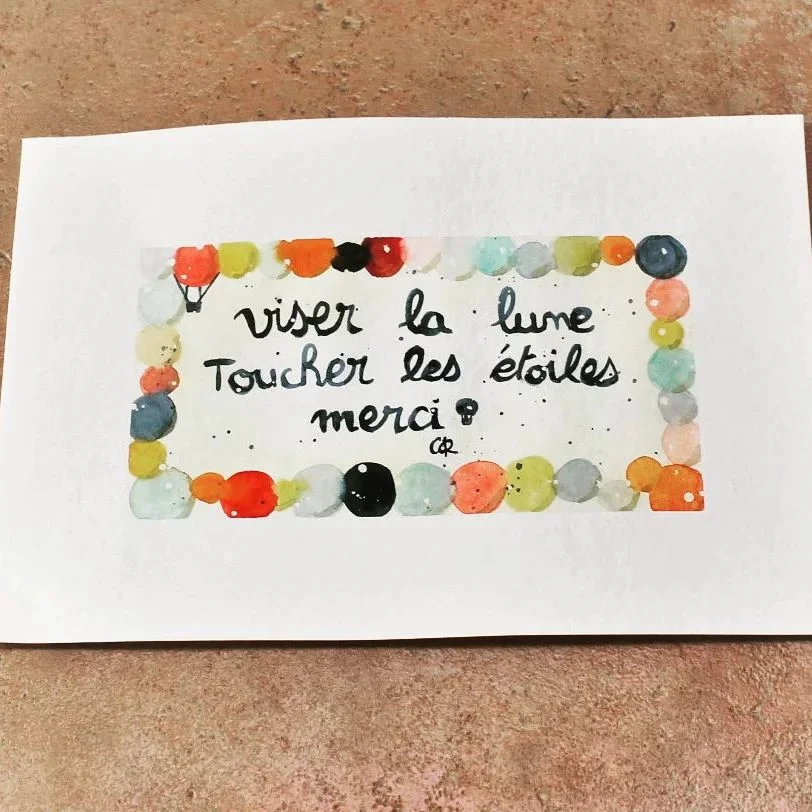 viser la lune
Toucher les étoiles
merci